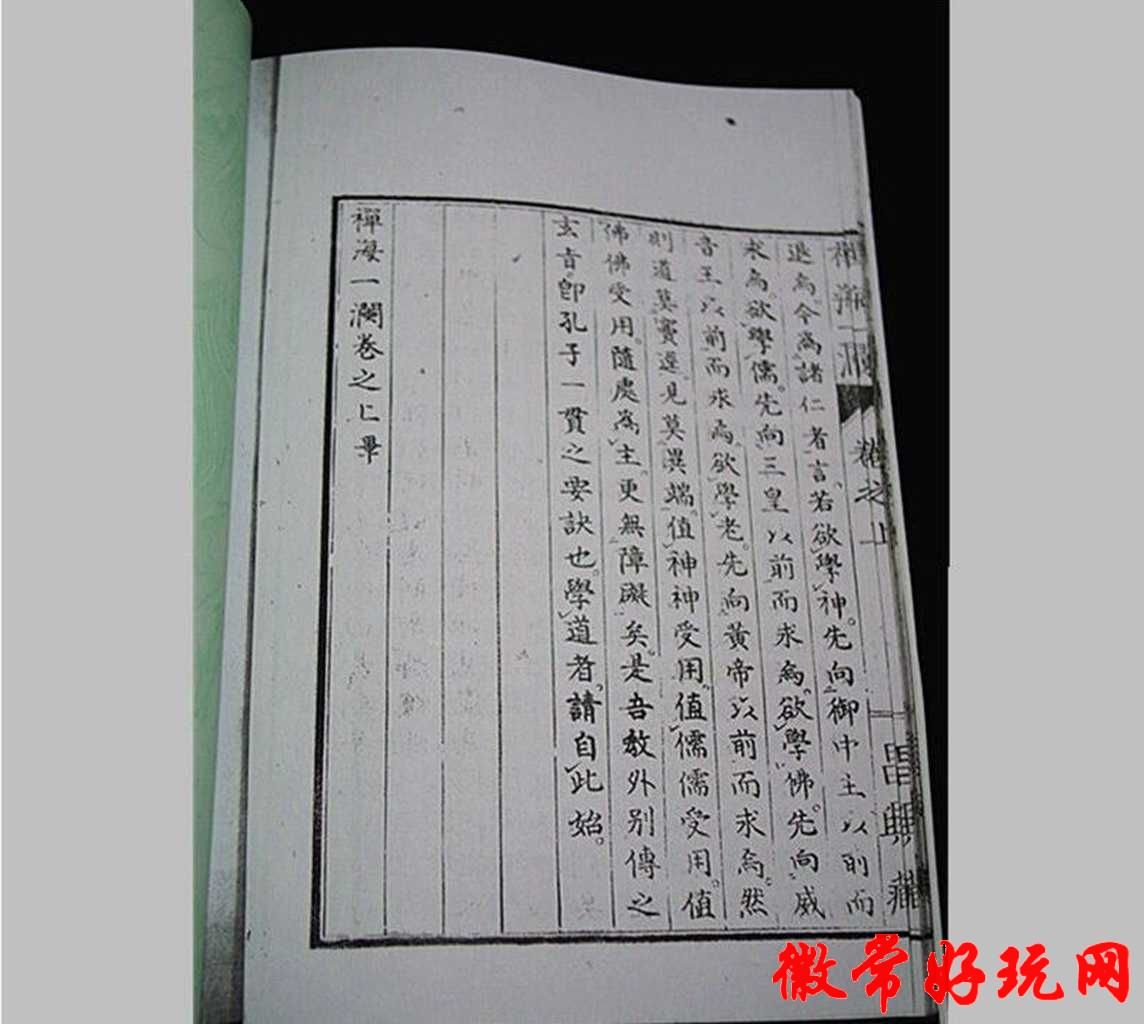 禪海一瀾 卷之上
昌興藏
退焉。今為諸仁者言。若欲學神。先向御中主以前而
求焉。欲學儒。先向三皇以前而求焉。欲學佛。先向威
音王以前而求焉。欲學老。先向黃帝以前而求焉。然
則道莫賓邊。見莫異端。值神神受用。值儒儒受用。值
佛佛受用。隨處為主。更無障礙矣。是吾教外別傳之
玄旨。卽孔子一貫之要訣也。學道者。請自此始。
禪海一瀾卷之上畢
徽常好玩网